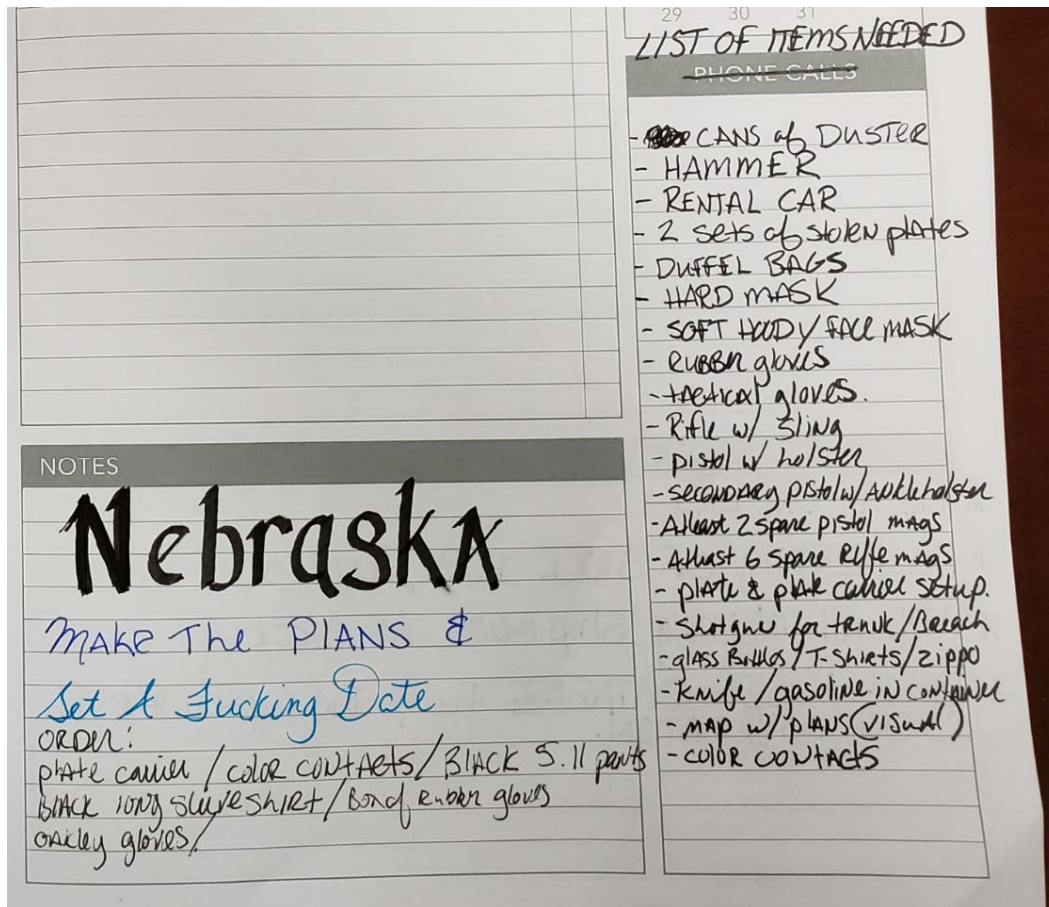 29 30 31
LIST OF ITEMS NEEDED
PHONE CALLS
- CANS of DUSTER
- HAMMER
- RENTAL CAR
- 2 sets of stolen plates
- DUFFEL BAGS
- HARD MASK
- SOFT HOODY/FACE MASK
- RUBBER gloves
- tactical gloves.
- Rifle w/ Sling
- pistol w/ holster
- SECONDARY pistol w/ Ankle holster
- Atleast 2 spare pistol mAgs
- Atleast 6 spare Rifle mAgs
- plate & plate carrier setup.
- Shotgun for trunk/Breach
- glass Bottles/T-Shirts/zippo
- Knife/gasoline in container
- MAP w/ plans (visual)
- COLOR CONTACTS
NOTES
NebraskA
MAKE The PlANS &
Set A Fucking Date
ORDER:
plAte carrier / color contActs / BlACK 5.11 pants
BlACK long sleeve shirt / Box of Rubber gloves
OAkley gloves/